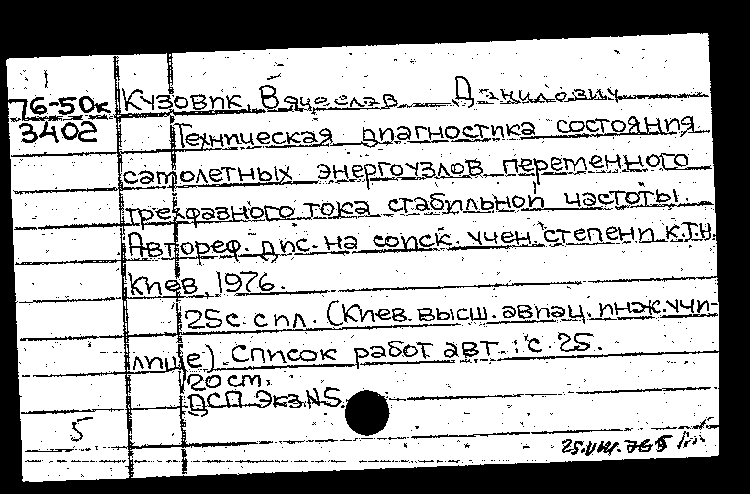 76-50к Кузовик, Вячеслав Данилович
3402 Техническая диагностика состояния
самолетных энергоузлов переменного
трехфазного тока стабильной частоты.
Автореф. дис. на соиск. учен. степени к.т.н.
Киев, 1976.
25с. с ил. (Киев. высш. авиац. инж. учи-
лище). Список работ авт.: с. 25.
20 cm.
ДСП. Экз. N5
5